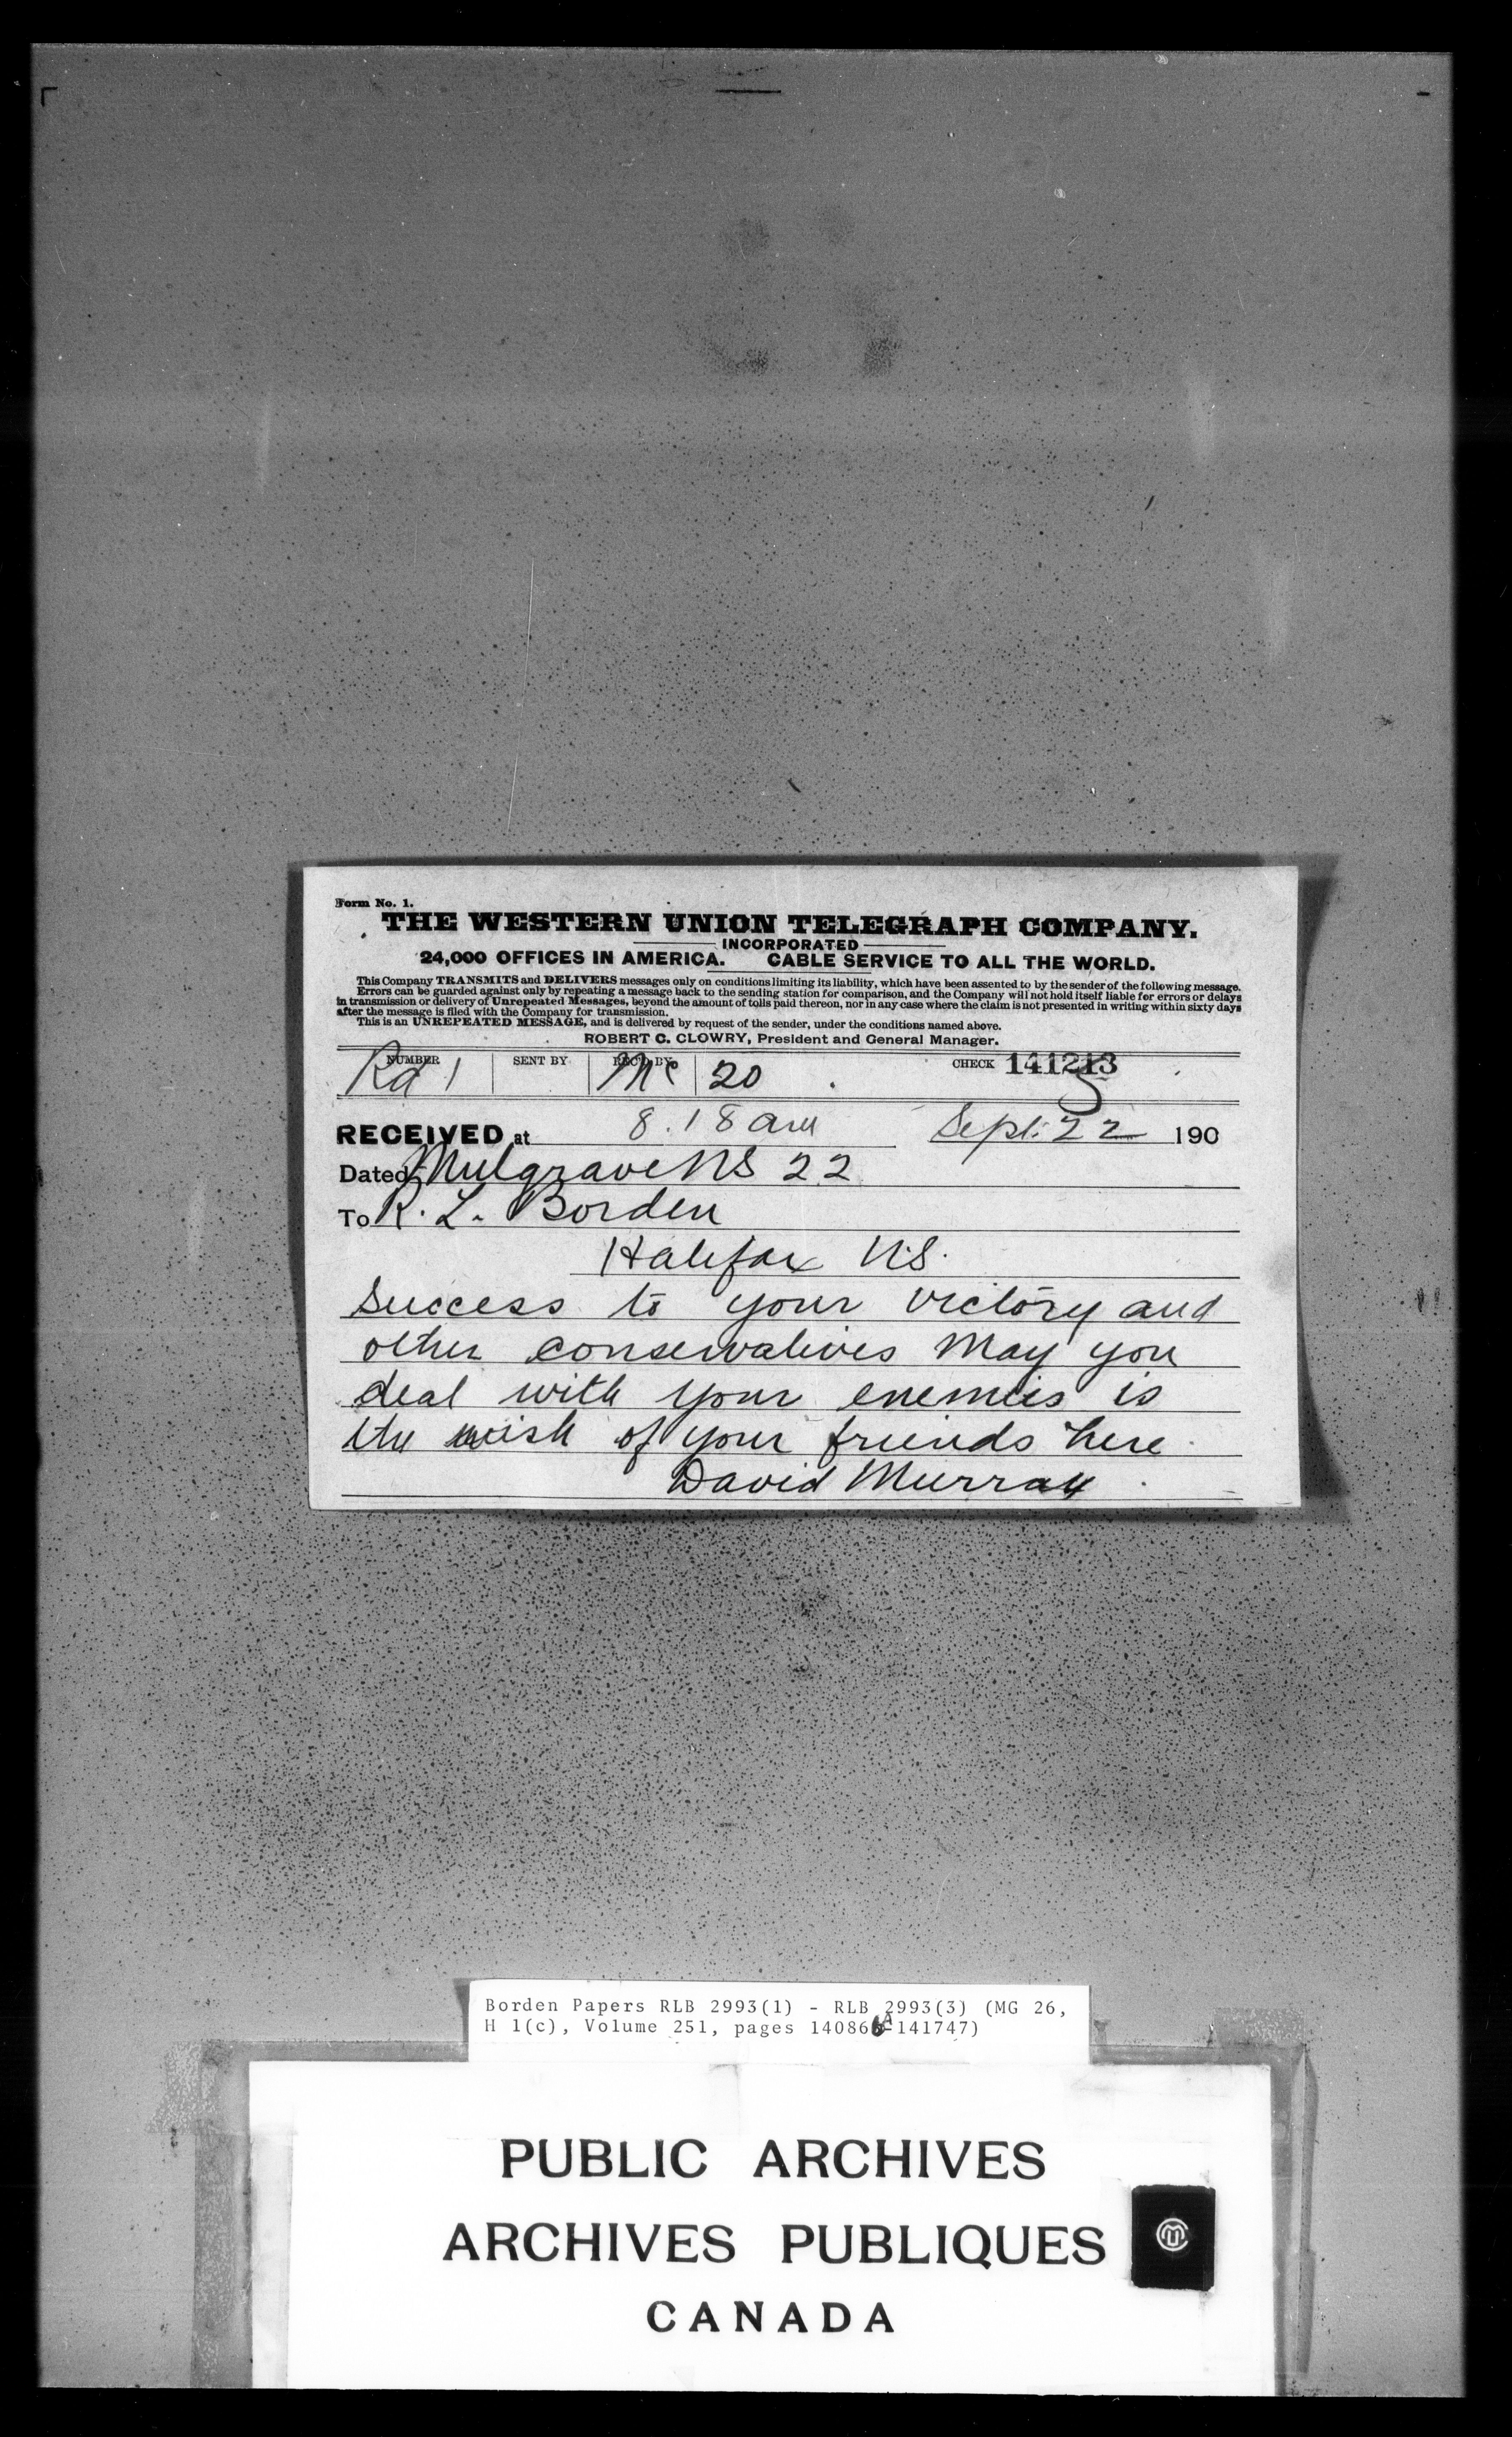 Form No. 1.
THE WESTERN UNION TELEGRAPH COMPANY.
INCORPORATED
24,000 OFFICES IN AMERICA. CABLE SERVICE TO ALL THE WORLD.
This Company TRANSMITS and DELIVERS messages only on conditions limiting its liability, which have been assented to by the sender of the following message.
Errors can be guarded against only by repeating a message back to the sending station for comparison, and the Company will not hold itself liable for errors or delays
in transmission or delivery of Unrepeated Messages, beyond the amount of tolls paid thereon, nor in any case where the claim is not presented in writing within sixty days
after the message is filed with the Company for transmission.
This is an UNREPEATED MESSAGE, and is delivered by request of the sender, under the conditions named above.
ROBERT C. CLOWRY, President and General Manager.
NUMBER SENT BY REC'D BY CHECK 141213
Rd 1 Mc 20
RECEIVED at 8.18 am Sept. 22 190
Dated Mulgrave NS 22
To R. L. Borden
Halifax N.S.
Success to your victory and
other conservatives May you
deal with your enemies is
the wish of your friends here
David Murray
Borden Papers RLB 2993(1) - RLB 2993(3) (MG 26,
H 1(c), Volume 251, pages 140866A-141747)
PUBLIC ARCHIVES
ARCHIVES PUBLIQUES
CANADA